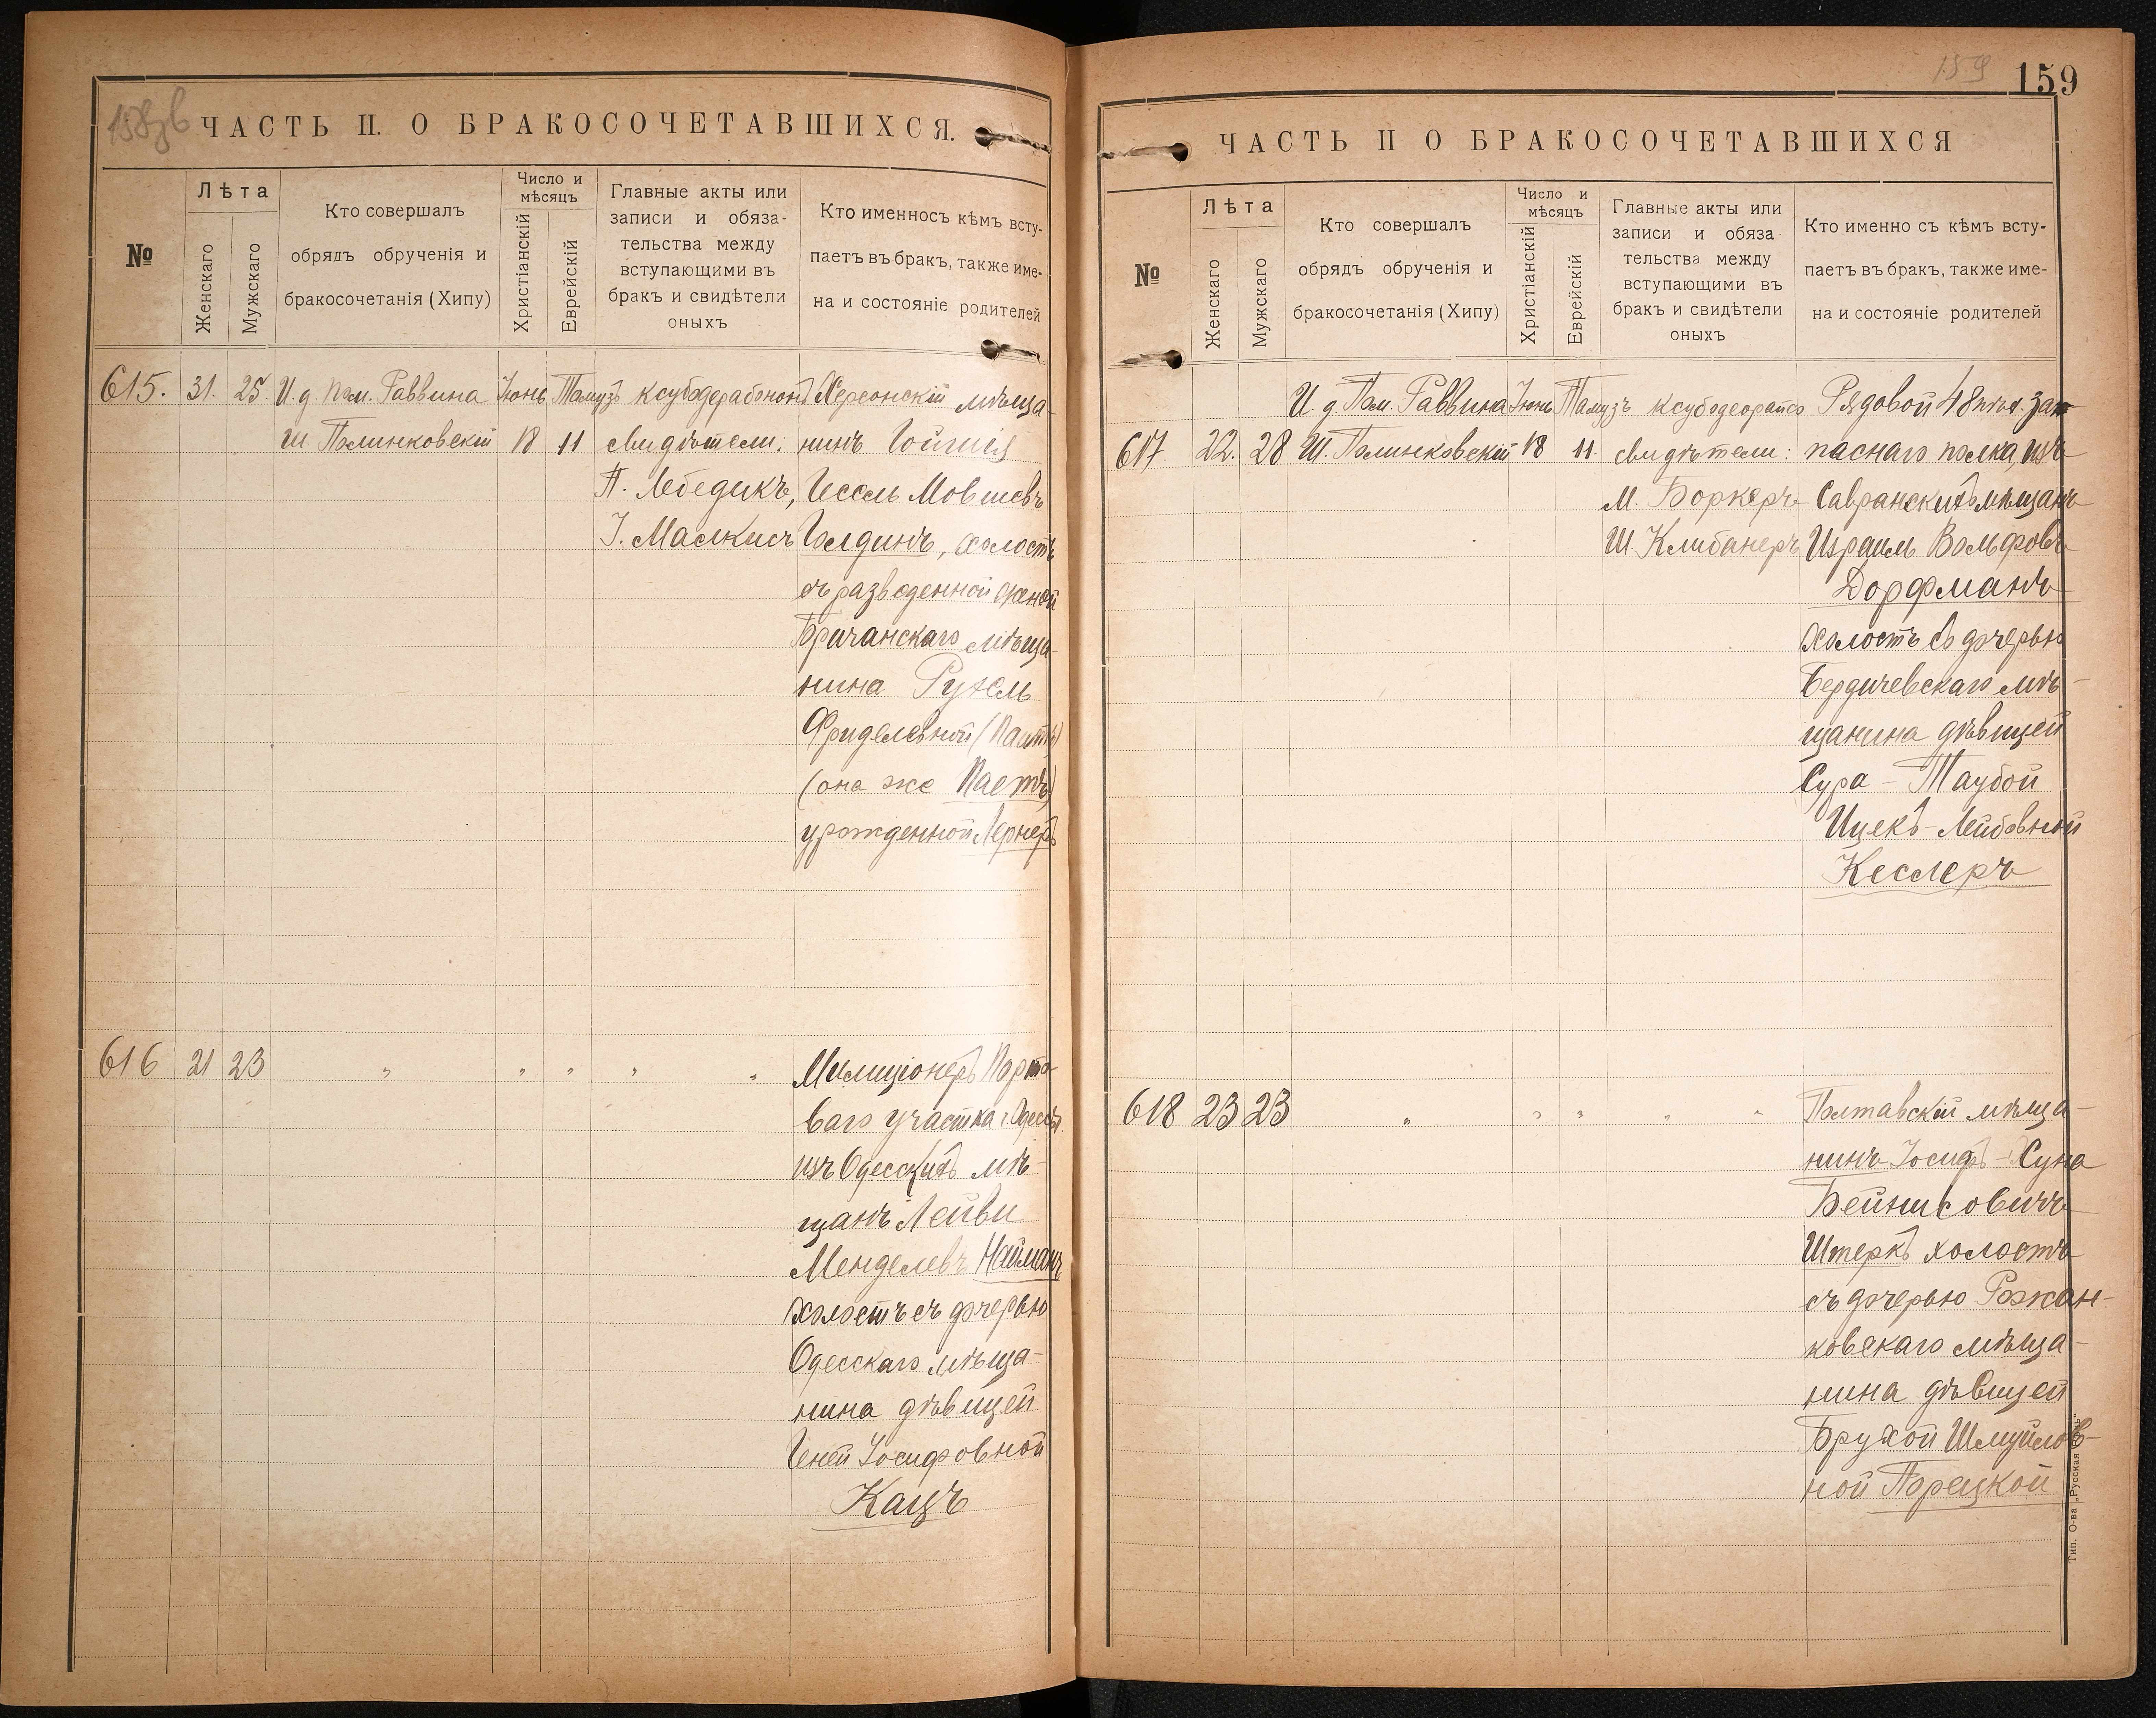 158 об
ЧАСТЬ II. О БРАКОСОЧЕТАВШИХСЯ.
№
Лѣта
Женскаго
Мужскаго
Кто совершалъ
обрядъ обрученія и
бракосочетанія (Хипу)
Число и
мѣсяцъ
Христіанскій
Еврейскій
Главные акты или
записи и обяза-
тельства между
вступающими въ
бракъ и свидѣтели
оныхъ
Кто именносъ кѣмъ всту-
паетъ въ бракъ, также име-
на и состояніе родителей
615. 31. 25. И. д. пом. Раввина Іюнь Тамузъ Херсонскій мѣща-
Ш. Полинковскій 18 11 свидѣтели: нинъ
П. Лебедикъ, Іессель Мовшевъ
І. Маскисъ Голдинъ, холостъ
съ разведенной женой
Бричанскаго мѣща-
нина Рухель
Фриделевной
(она же Паетъ)
урожденной Лернеръ
616 21 23 " " " " " Милиціонеръ Порто-
ваго участка г. Одессы
изъ Одесскихъ мѣ-
щанъ Лейви
Менделевъ Найманъ
холостъ съ дочерью
Одесскаго мѣща-
нина дѣвицей
Геней Іосифовной
Кацъ
159
159
ЧАСТЬ II О БРАКОСОЧЕТАВШИХСЯ
№
Лѣта
Женскаго
Мужскаго
Кто совершалъ
обрядъ обрученія и
бракосочетанія (Хипу)
Число и
мѣсяцъ
Христіанскій
Еврейскій
Главные акты или
записи и обяза
тельства между
вступающими въ
бракъ и свидѣтели
оныхъ
Кто именно съ кѣмъ всту-
паетъ въ бракъ, также име-
на и состояніе родителей
И. д Пом. Раввина Іюнь Тамузъ Рядовой 48 пѣх. зап
617. 22. 28 Ш. Полинковскій 18 11. свидѣтели: паснаго полка, изъ
М. Боркеръ Савранскихъ мѣщанъ
Ш Клибанеръ Израиль Вольфовъ
Дорфманъ
холостъ съ дочерью
Бердичевскаго мѣ-
щанина дѣвицей
Сура - Таубой
Ицекъ - Лейбовной
Кеслеръ
618 23 23 " " " " " Полтавскій мѣща-
нинъ Іосифъ - Суна
Бейнисовичъ
Штеркъ холостъ
съ дочерью Рожан-
ковскаго мѣща-
нина дѣвицей
Брухой Шмуйлов-
ной Порецкой
Тип. О-ва „Русская